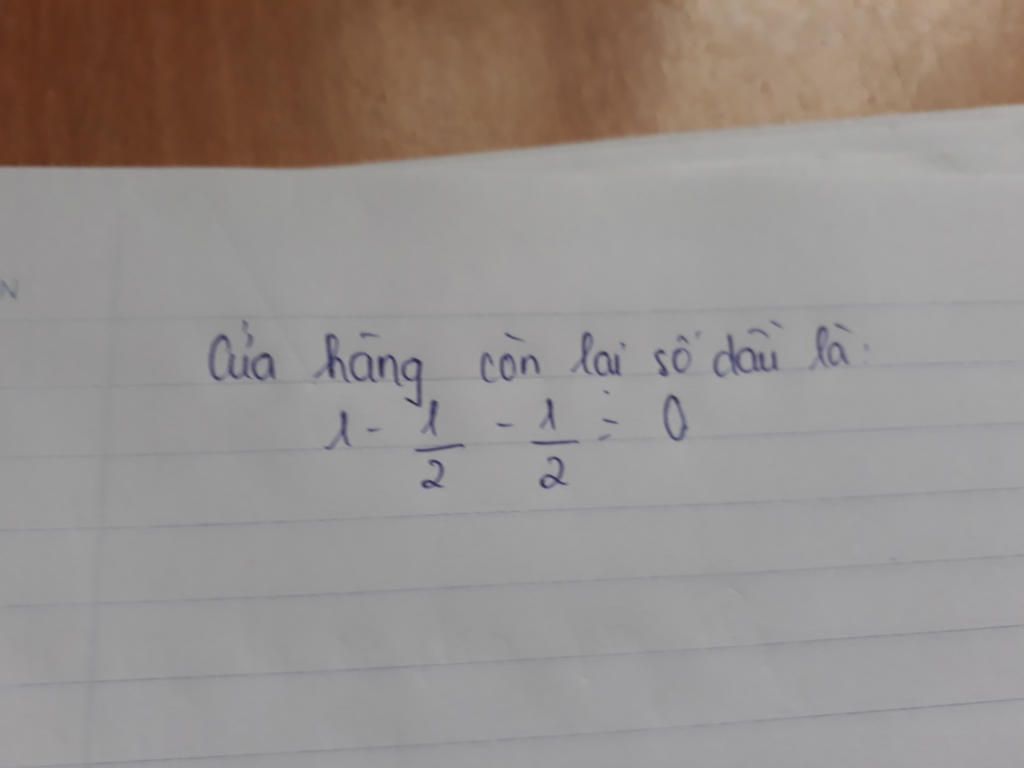 Của hàng còn lại số dầu là:
1 - 1/2 - 1/2 = 0